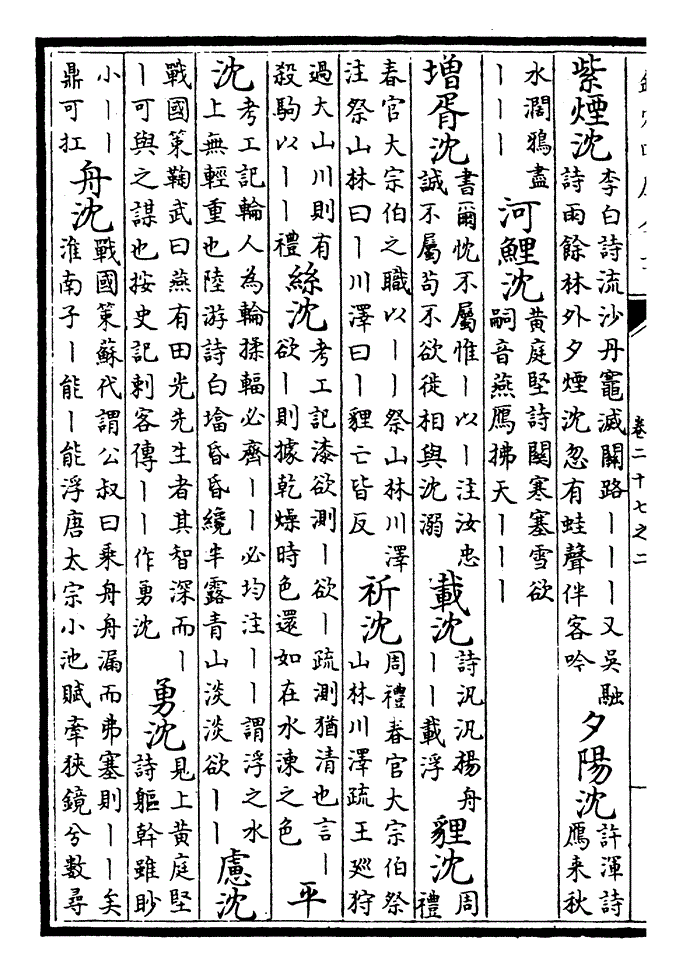 卷二十七之二
紫煙沈李白詩流沙丹竈滅關路｜｜｜又吳融詩雨餘林外夕煙沈忽有蛙聲伴客吟 夕陽沈許渾詩鴈来秋
水濶鴉盡｜｜｜ 河鯉沈黄庭堅詩関寒塞雪欲嗣音燕鴈拂天｜｜｜
増胥沈書爾忱不屬惟｜以｜注汝忠誠不屬苟不欲徙相與沈溺 載沈詩汎汎楊舟｜｜載浮 貍沈周禮
春官大宗伯之職以｜｜祭山林川澤注祭山林曰｜川澤曰｜貍亡皆反 祈沈周禮春官大宗伯祭山林川澤疏王廵狩
過大山川則有殺駒以｜｜禮 絲沈考工記漆欲測｜欲｜疏測猶清也言｜欲｜則據乾燥時色還如在水湅之色 平
沈考工記輪人為輪揉輻必齊｜｜必均注｜｜謂浮之水上無輕重也陸游詩白㙮昏昏纔半露青山淡淡欲｜｜ 慮沈
戰國策鞠武曰燕有田光先生者其智深而｜｜可與之謀也按史記刺客傳｜｜作勇沈 勇沈見上黄庭堅詩軀幹雖眇
小｜｜鼎可扛 舟沈戰國策蘇代謂公叔曰乗舟舟漏而弗塞則｜｜矣淮南子｜能｜能浮唐太宗小池賦牽狹鏡兮數尋